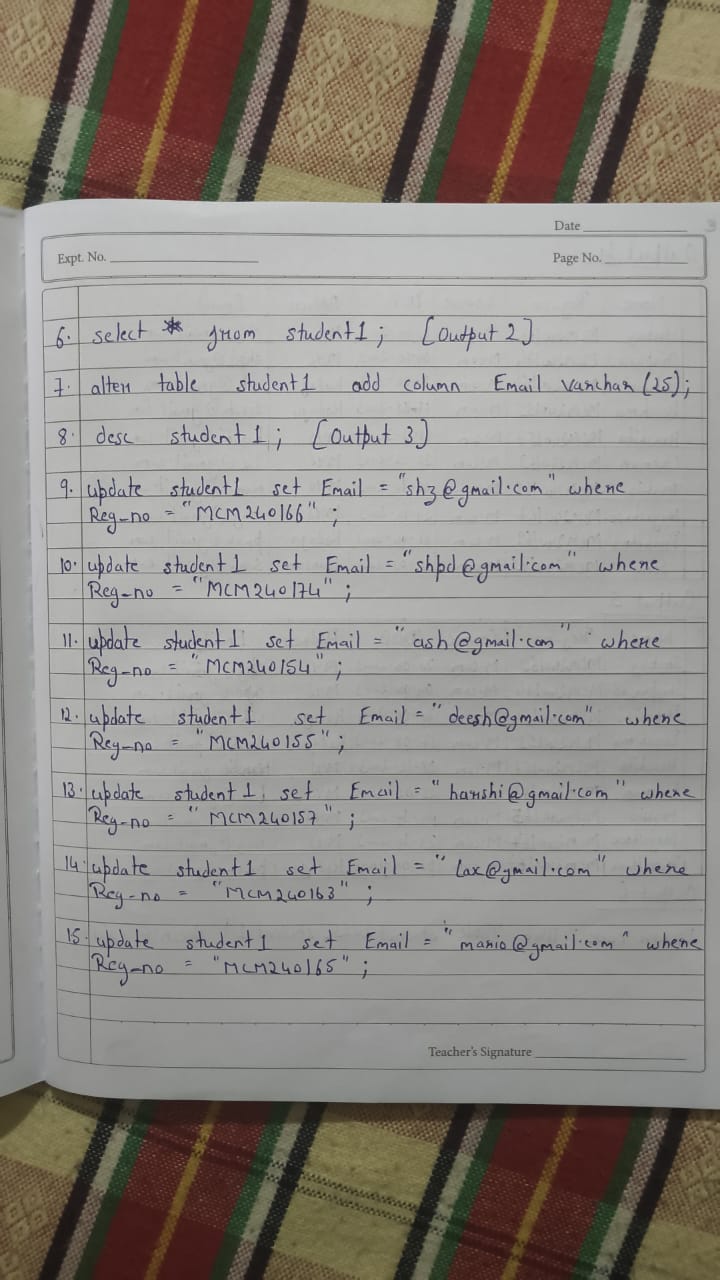 Date
Expt. No.
Page No.
6. select * from student1; [Output 2]
7. alter table student1 add column Email varchar(25);
8. desc student1; [Output 3]
9. update student1 set Email = "shz@gmail.com" where
Reg-no = "MCM240166";
10. update student1 set Email = "shpd@gmail.com" where
Reg-no = "MCM240174";
11. update student1 set Email = "ash@gmail.com" where
Reg-no = "MCM240154";
12. update student1 set Email = "deesh@gmail.com" where
Reg-no = "MCM240155";
13. update student1 set Email = "harshi@gmail.com" where
Reg-no = "MCM240157";
14. update student1 set Email = "lax@gmail.com" where
Reg-no = "MCM240163";
15. update student1 set Email = "mario@gmail.com" where
Reg-no = "MCM240165";
Teacher's Signature